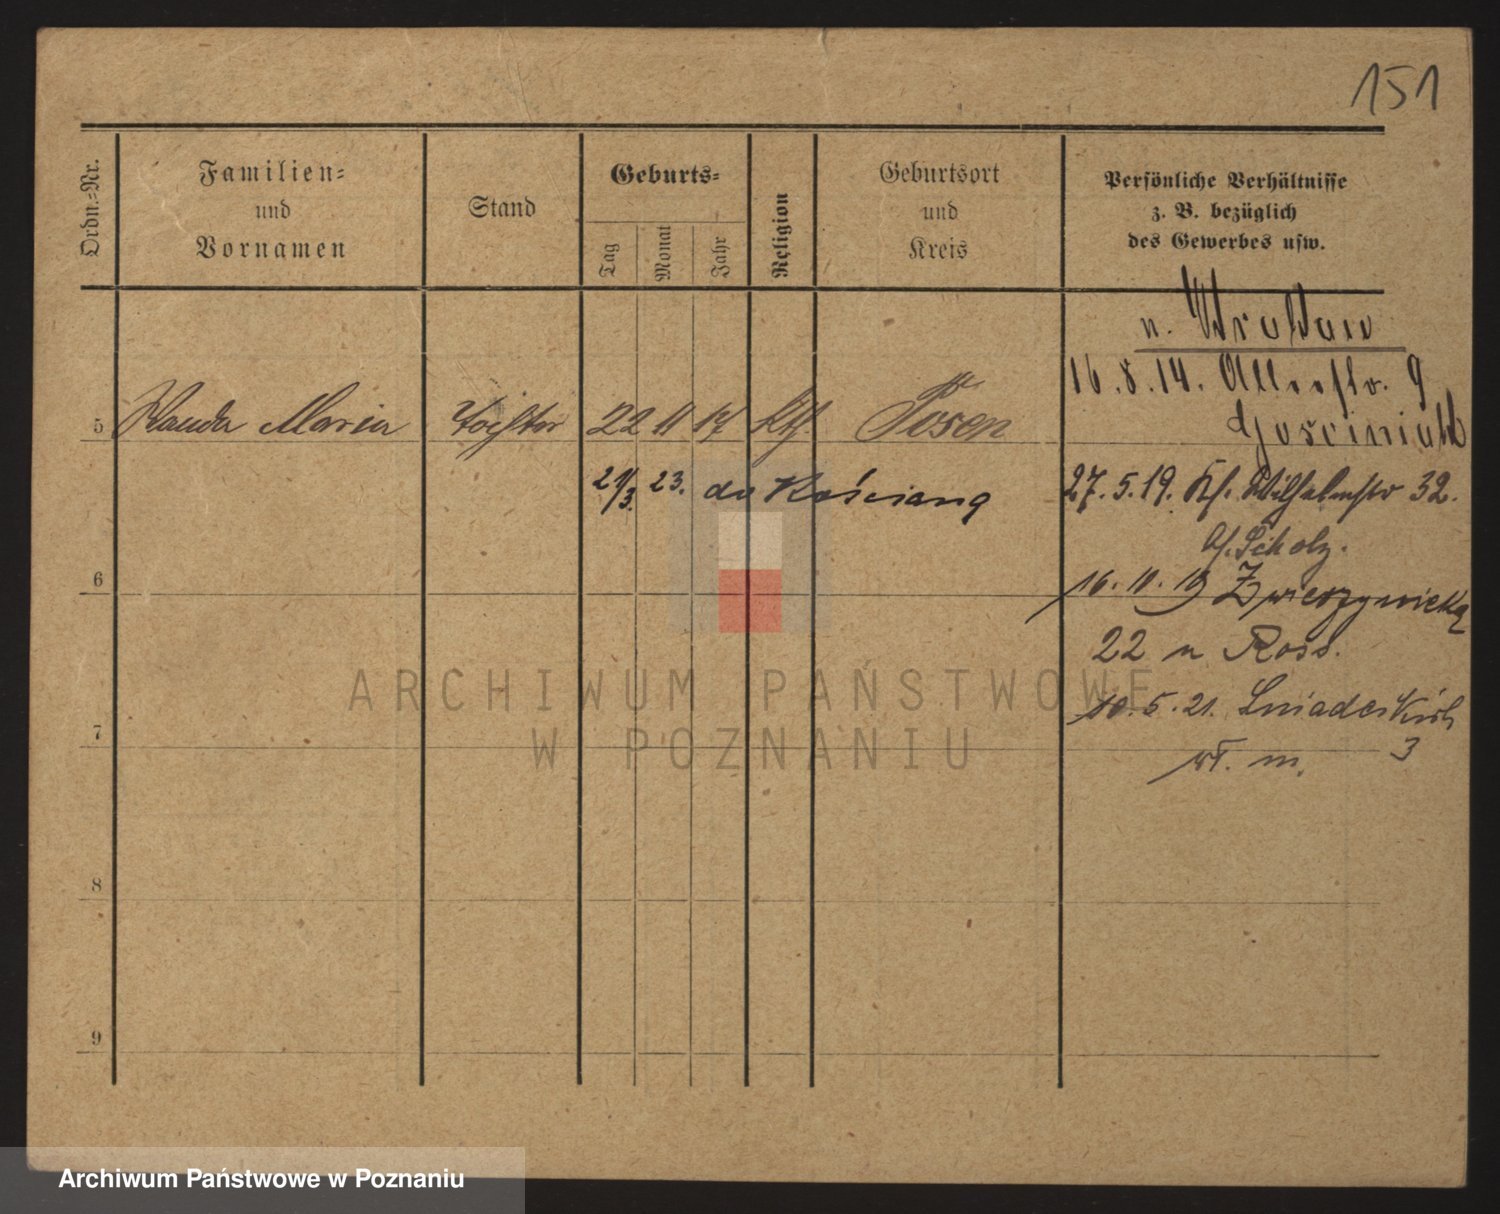 151
Ordn.-Nr.
Familien-
und
Vornamen
Stand
Geburts-
Tag
Monat
Jahr
Religion
Geburtsort
und
Kreis
Persönliche Verhältnisse
z. B. bezüglich
des Gewerbes usw.
n.
16.8.14. 9
5 Wanda Maria Tochter 22 11 17 Kth. Posen
27.5.19. Wilhelmstr 32.
21/3. 23. do Kościana
b/. Scholz.
6
16.11.19 Zwierzyniecka
22 u Ross.
10.5.21. Śniadeckich
3
7
wł. m.
8
9
ARCHIWUM PAŃSTWOWE
W POZNANIU
Archiwum Państwowe w Poznaniu